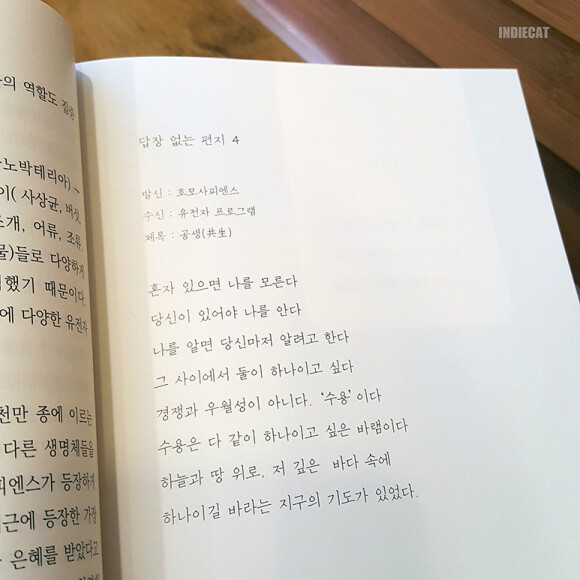 INDIECAT
의 역할도 질환
노박테리아) ~
이( 사상균, 버섯,
조개, 어류, 조류,
물)들로 다양하게
했기 때문이다.
에 다양한 유전자
천만 종에 이르는
다른 생명체들을
피엔스가 등장하게
근에 등장한 가장
은혜를 받았다고
답장 없는 편지 4
발신 : 호모사피엔스
수신 : 유전자 프로그램
제목 : 공생(共生)
혼자 있으면 나를 모른다
당신이 있어야 나를 안다
나를 알면 당신마저 알려고 한다
그 사이에서 둘이 하나이고 싶다
경쟁과 우월성이 아니다. ‘수용’이다
수용은 다 같이 하나이고 싶은 바램이다
하늘과 땅 위로, 저 깊은 바다 속에
하나이길 바라는 지구의 기도가 있었다.